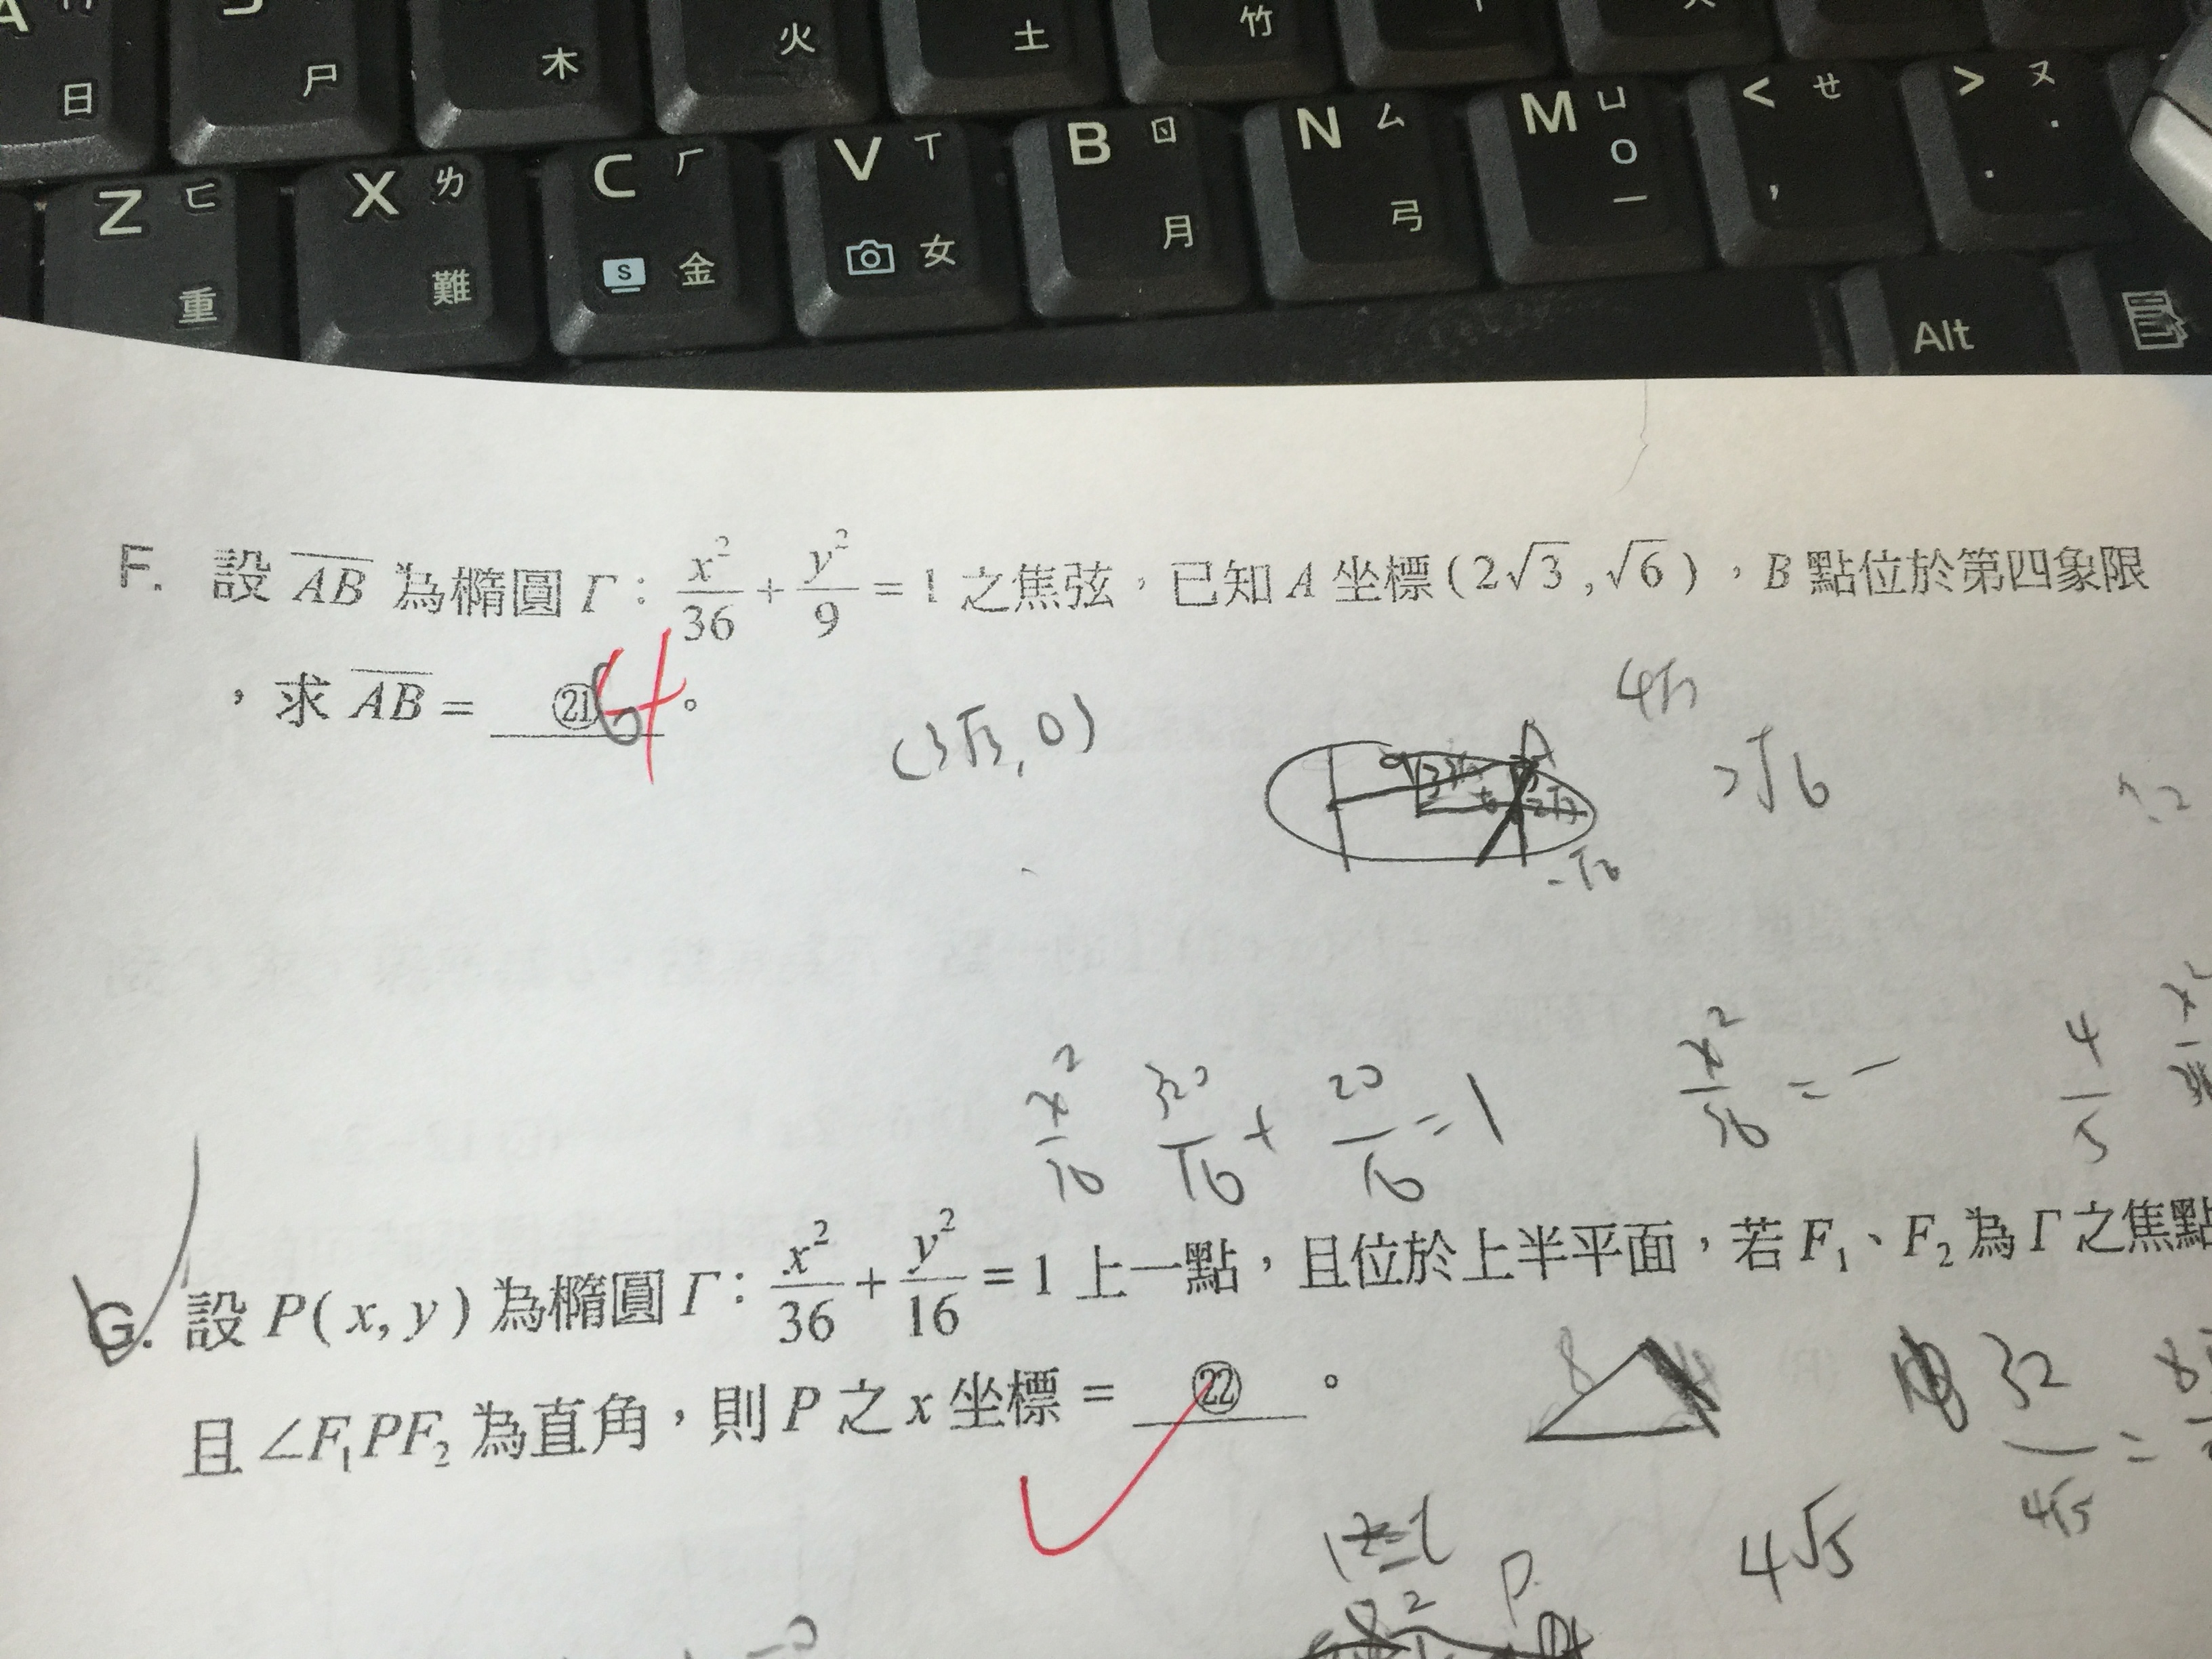 日 尸 木 火 土 竹
Z ㄈ 重 X ㄌ 難 C ㄏ S 金 V ㄒ 女 B ㄖ 月 N ㄙ 弓 M ㄩ 0 一 < ㄝ , > ㄡ .
Alt
F. 設 AB 為橢圓 Γ: x²/36 + y²/9 = 1 之焦弦,已知 A 坐標(2√3,√6),B 點位於第四象限
,求 AB = ㉑ 6 。
(3√3, 0)
A
2√6
x²/16 320/16 + 20/16 = 1
x²/36 = -
4/5
G. 設 P(x, y) 為橢圓 Γ: x²/36 + y²/16 = 1 上一點,且位於上半平面,若 F₁、F₂ 為 Γ 之焦點
且 ∠F₁PF₂ 為直角,則 P 之 x 坐標 = ㉒ 。
8
32/4√5 =
4√5
P